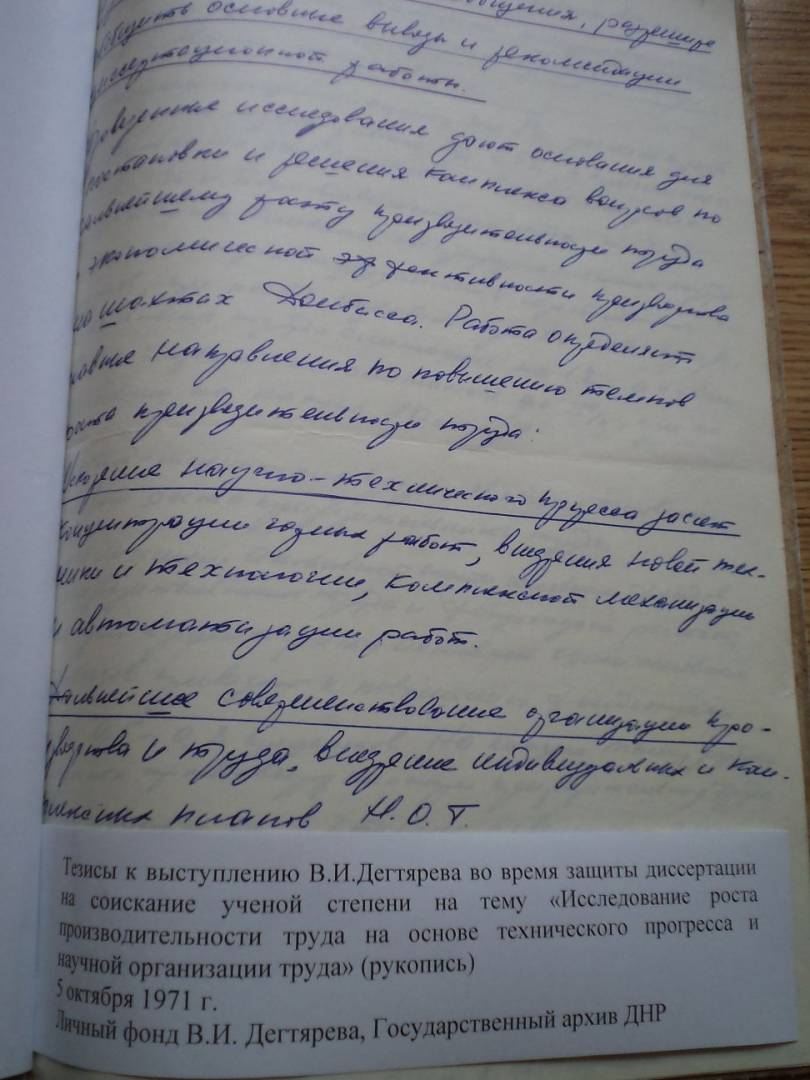 общения, разреши
основные выводы и рекомендации
диссертационной работы.
исследования дают основания для
постановки и решения комплекса вопросов по
дальнейшему росту производительности труда
экономической эффективности производства
на шахтах Донбасса. Работа определяет
главные направления по повышению темпов
роста производительности труда:
Ускорение научно-технического прогресса засчет
концентрации горных работ, внедрения новой тех-
ники и технологии, комплексной механизации
и автоматизации работ.
Дальнейшее совершенствование организации про-
изводства и труда, внедрение индивидуальных и ком-
плексных планов Н.О.Т.
Тезисы к выступлению В.И.Дегтярева во время защиты диссертации
на соискание ученой степени на тему «Исследование роста
производительности труда на основе технического прогресса и
научной организации труда» (рукопись)
5 октября 1971 г.
Личный фонд В.И. Дегтярева, Государственный архив ДНР